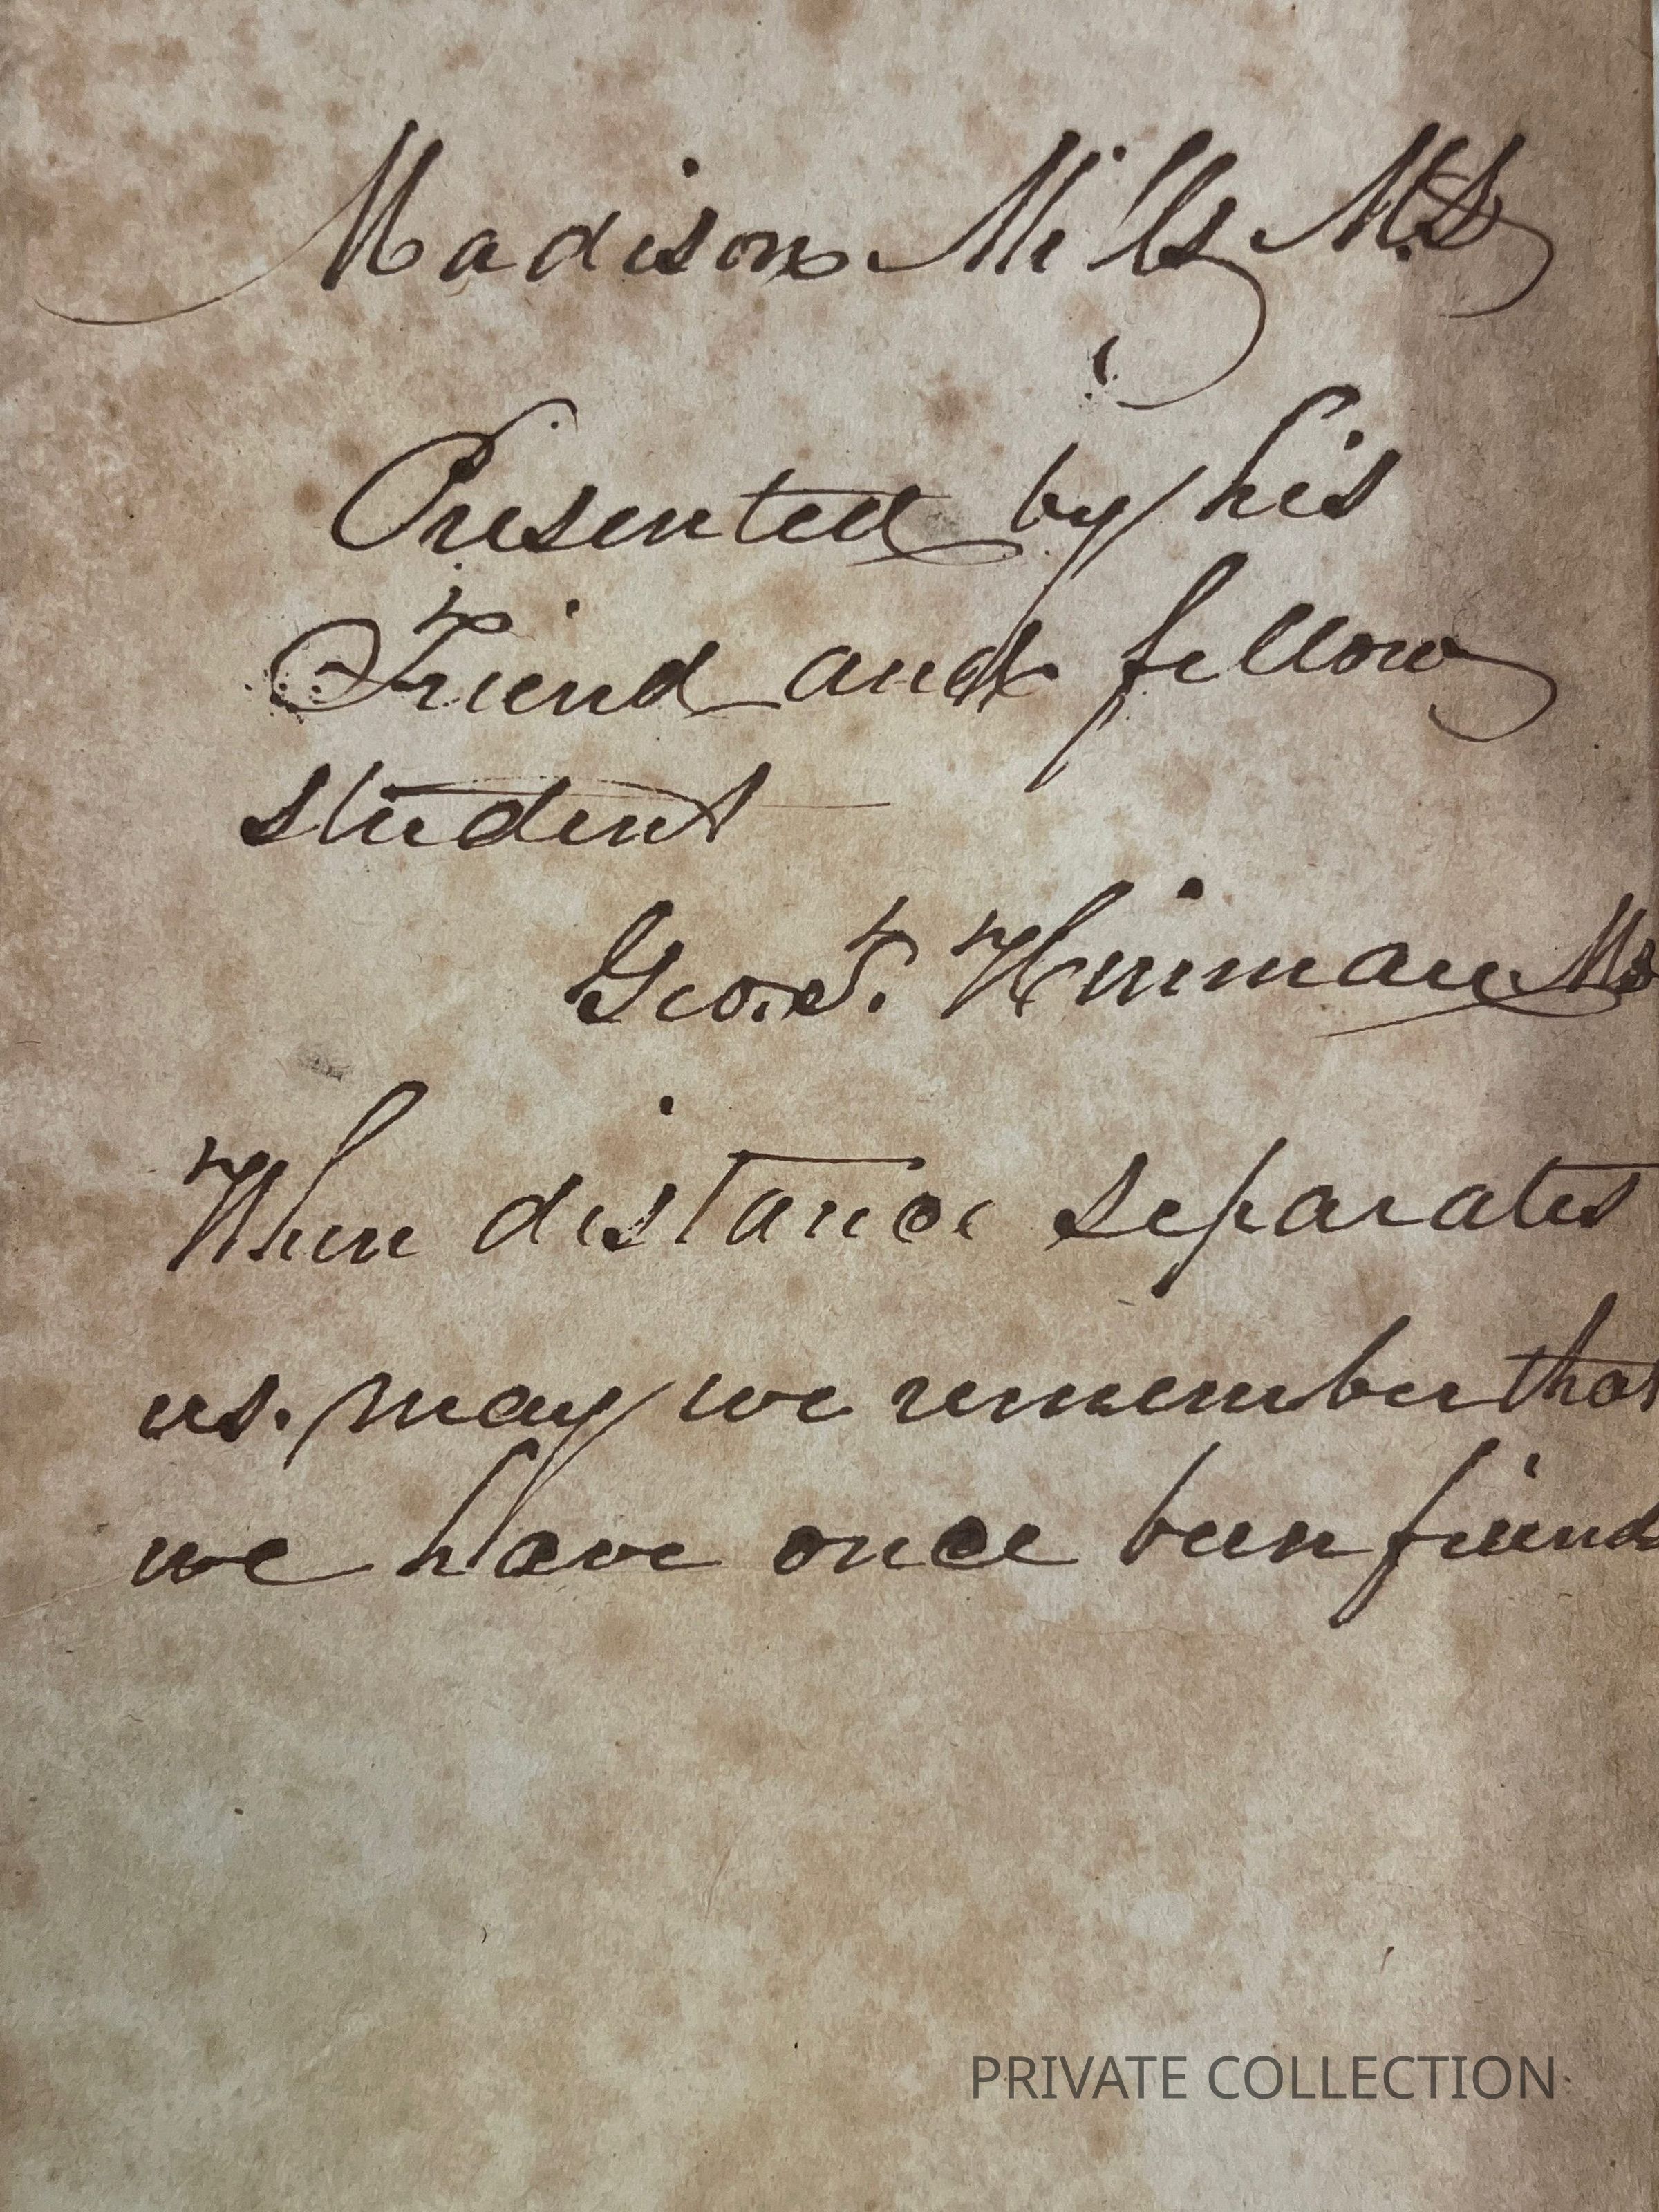 Madison Mills M.D
Presented by his
Friend and fellow
student
Geo. S. Hinman MD
When distance separates
us. may we remember that
we have once been friend
PRIVATE COLLECTION